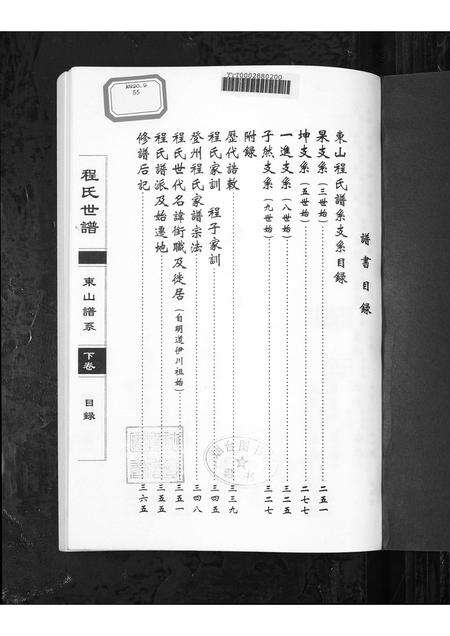 譜書目錄
東山程氏譜系支系目錄
杲支系(三世始)二五一
坤支系(五世始)二七七
一進支系(八世始)三二五
子然支系(九世始)三二七
附錄
歷代誥敕三三九
程氏家訓 程子家訓三四五
登州程氏家譜宗法三四八
程氏世代名諱銜職及徙居(自明道伊川祖始)三五一
程氏譜派及始遷地三五五
修譜后記三六五
程氏世譜
東山譜系
下卷
目錄
55